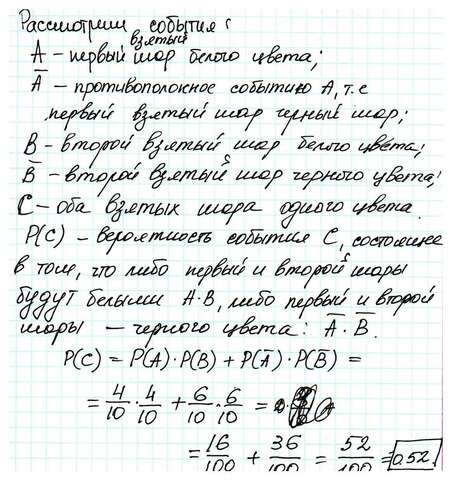 Рассмотрим события:
А – первый взятый шар белого цвета;
A̅ – противоположное событию А, т.е
первый взятый шар черный шар;
В – второй взятый шар белого цвета;
B̅ – второй взятый шар черного цвета;
С – оба взятых шара одного цвета.
Р(С) – вероятность события С, состоящее
в том, что либо первый и второй шары
будут белыми А·В, либо первый и второй
шары – черного цвета: A̅·B̅.
Р(С) = Р(А)·Р(В) + Р(A̅)·Р(B̅) =
= 4/10 · 4/10 + 6/10 · 6/10 =
= 16/100 + 36/100 = 52/100 = 0.52.